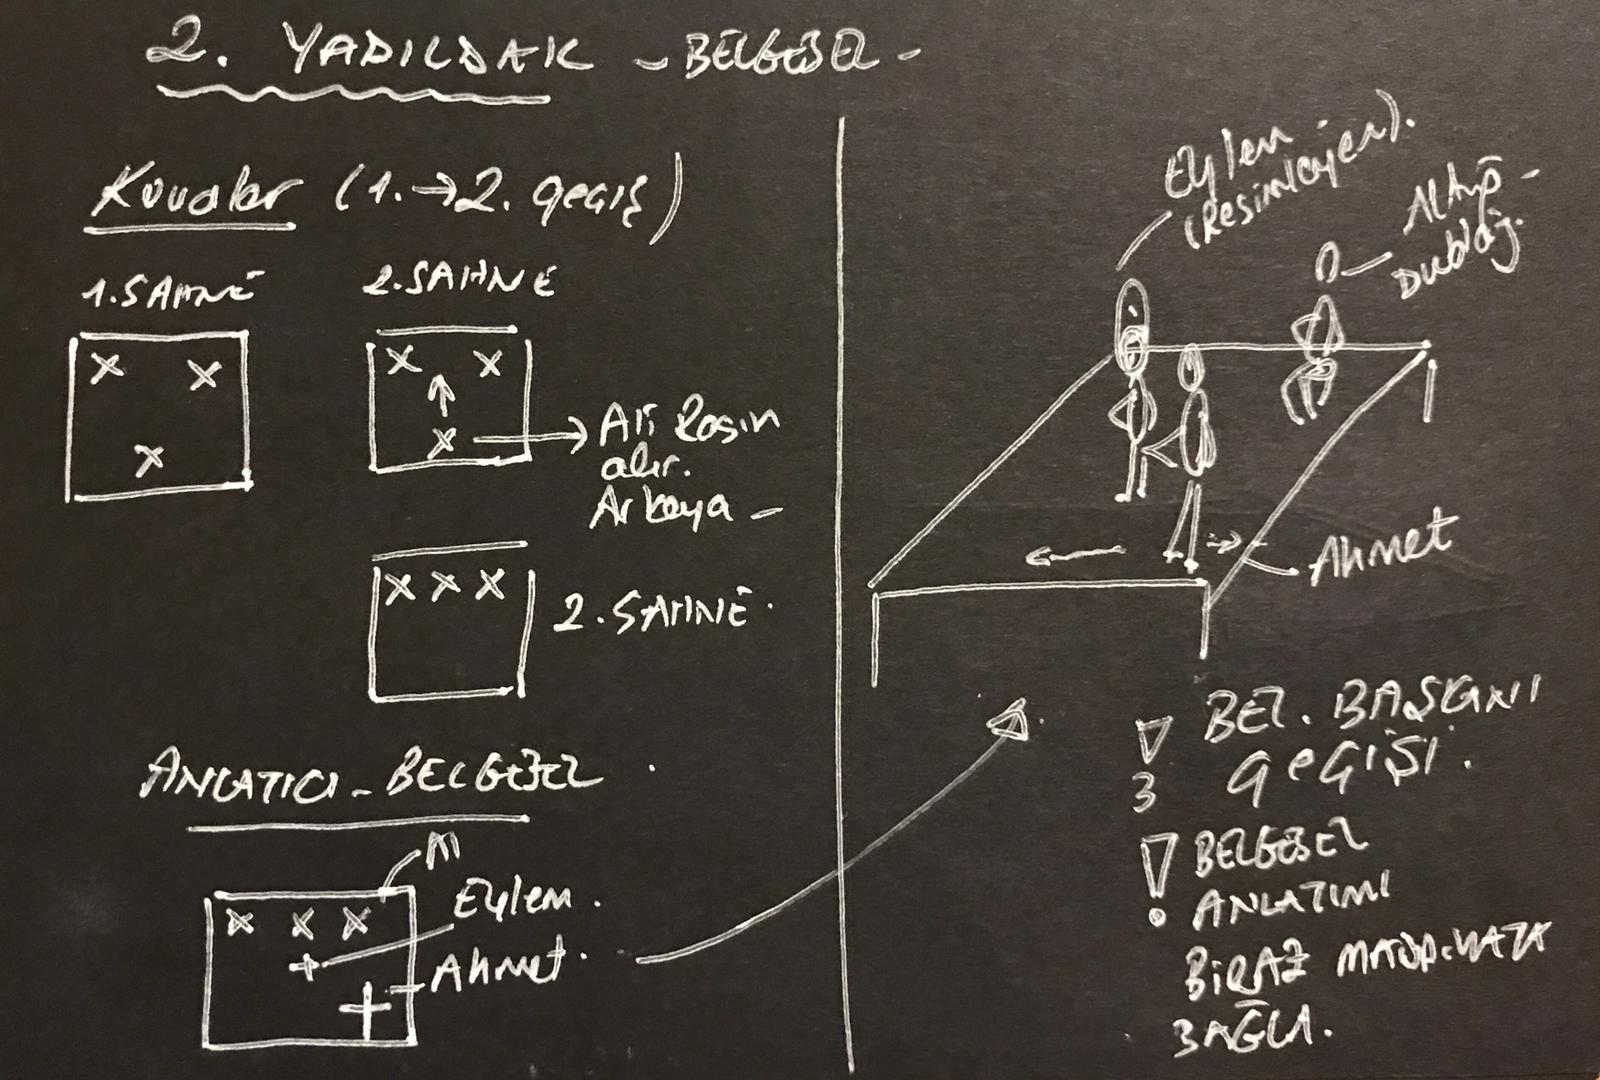 2. YADILDAK - BELGESEL -
Kovalar (1.→2. geçiş)
1. SAHNE
2. SAHNE
x x
x
x x
↑
x → Ali Rosin
alır.
Arkaya -
x x x
2. SAHNE.
ANLATICI - BELGESEL.
A
x x x
Eylem.
+
Ahmet.
+
Eylem
(Resimleyen).
Altup -
Dublaj.
← →
Ahmet
BEL. BAŞKANI
GEÇİŞİ.
BELGESEL
ANLATIMI
BİRAZ
BAĞLA.